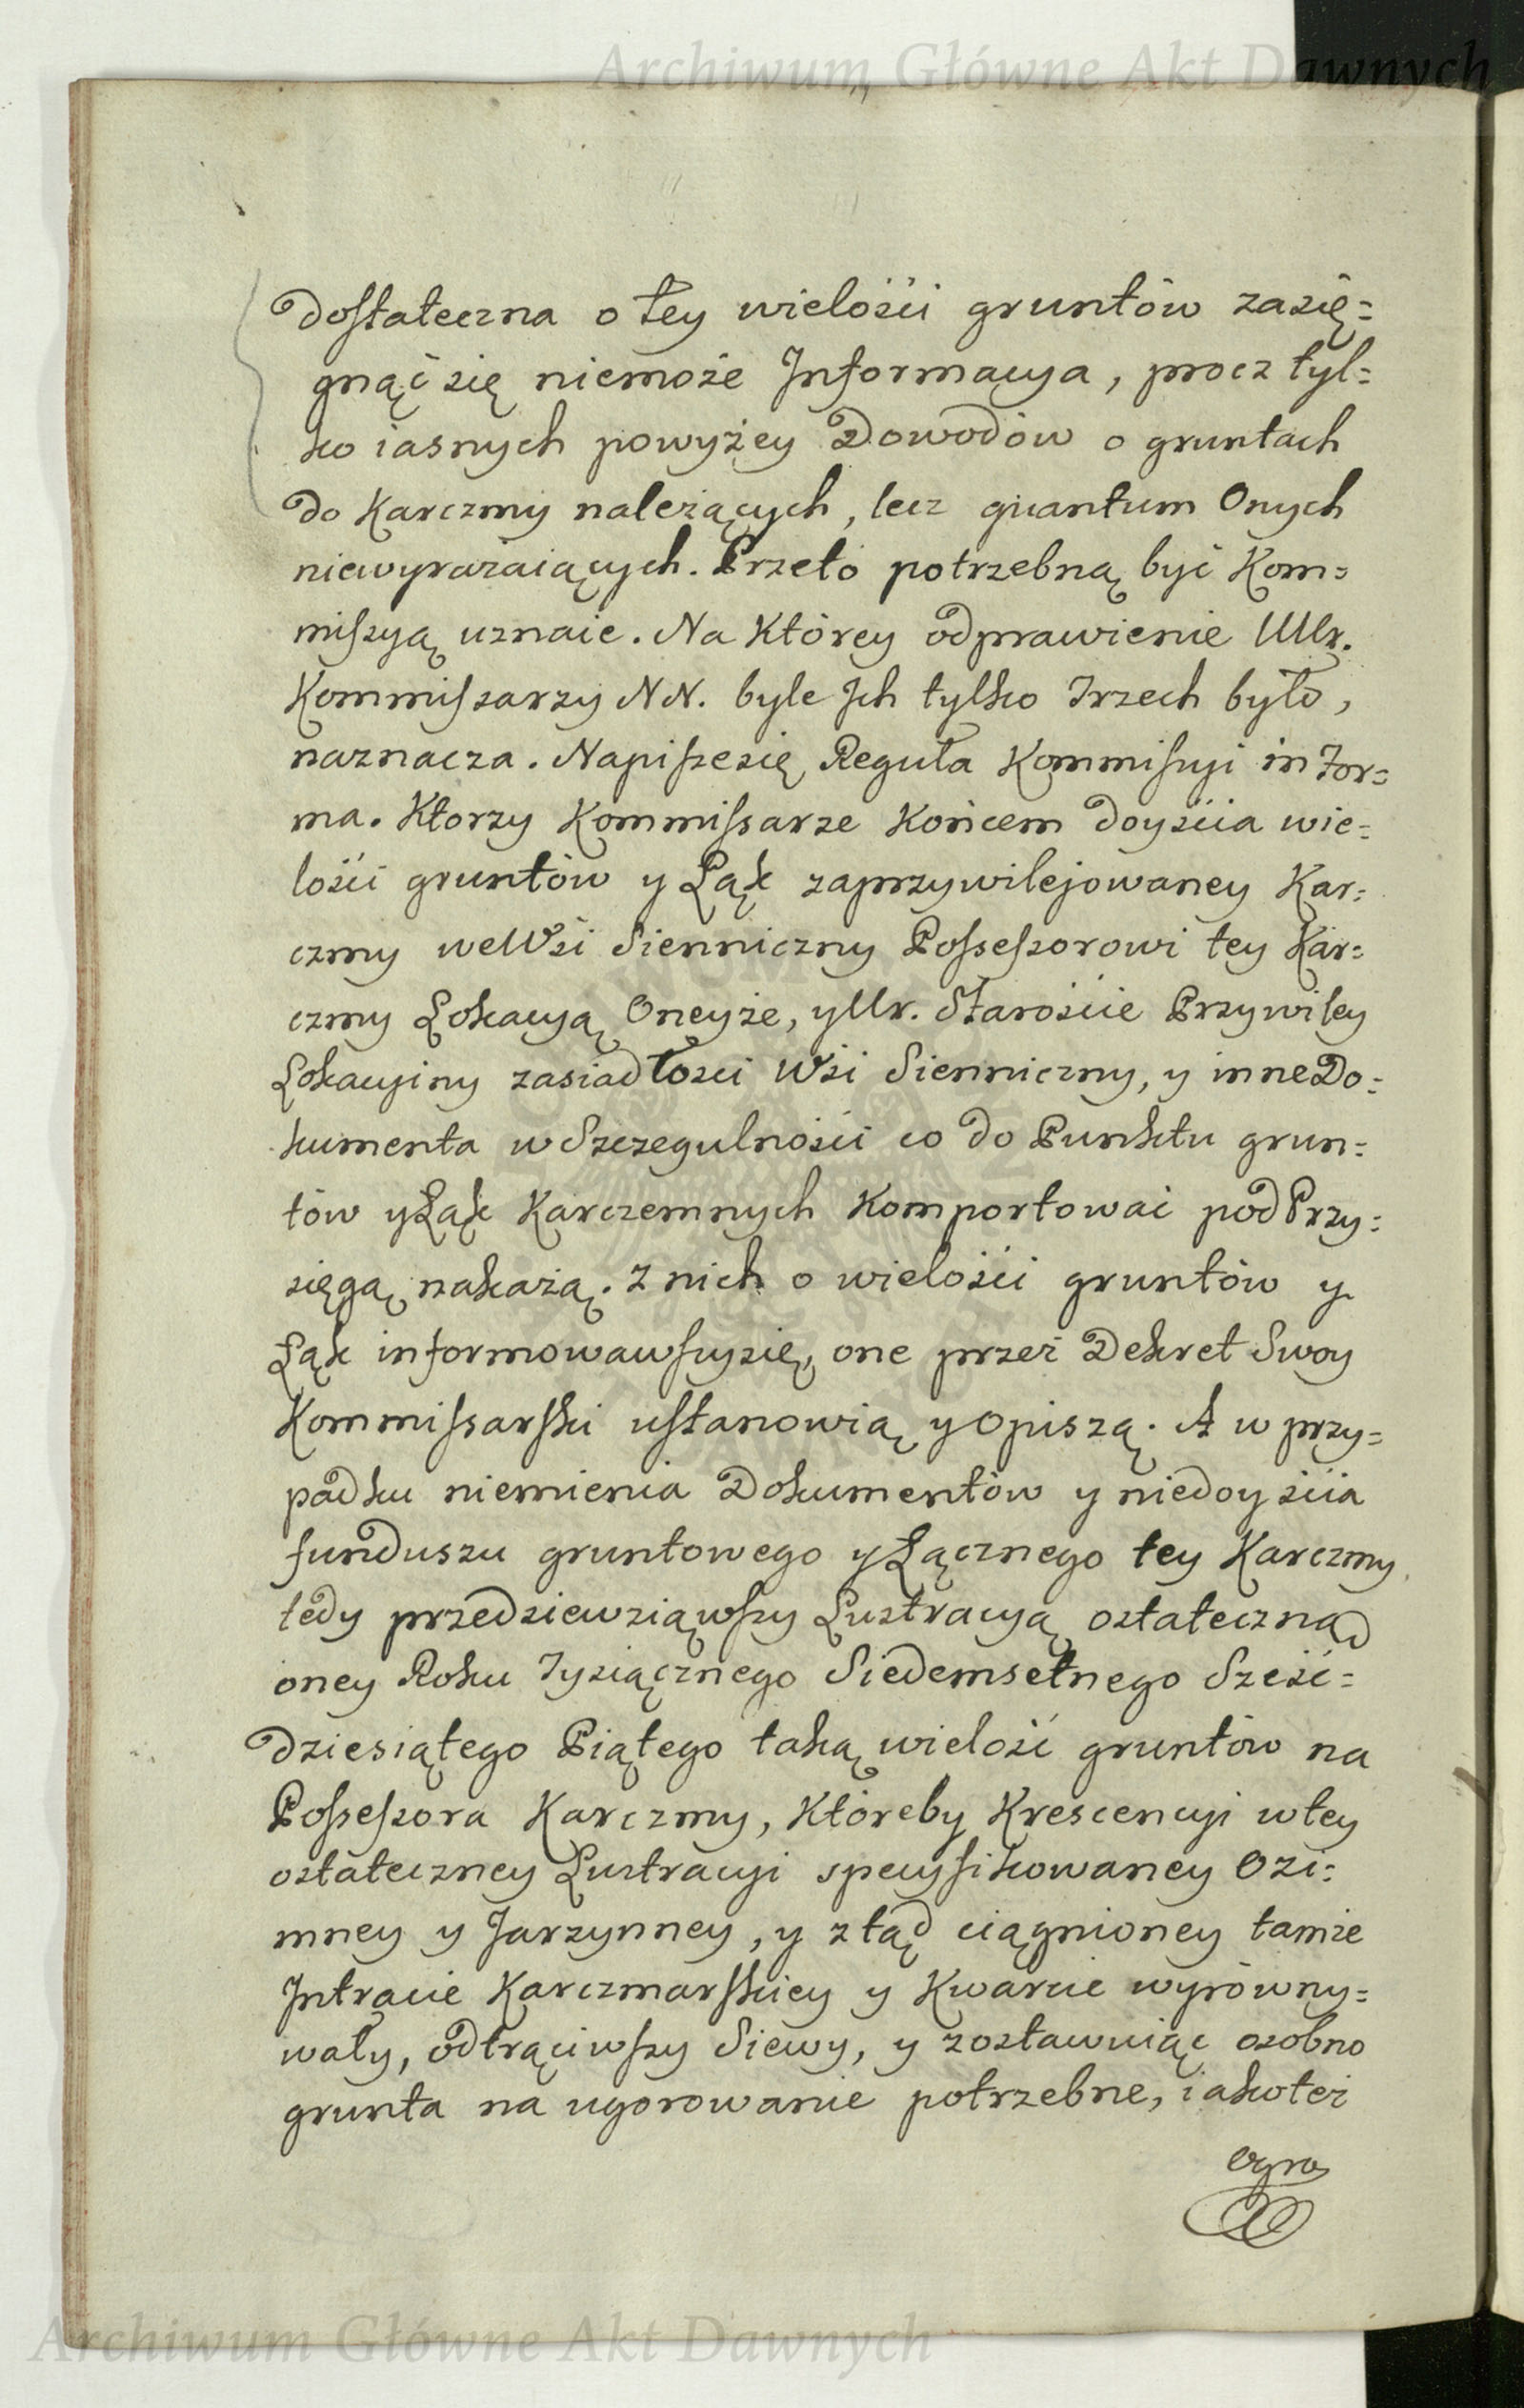 Archiwum Główne Akt Dawnych
Dostateczna o tey wielości gruntów zasię=
gnąć się niemoże Informacya, procz tyl=
ko iasnych powyżey Dowodów o gruntach
do Karczmy należących, lecz quantum Onych
niewyrażaiących. Przeto potrzebną być Kom=
missyą uznaie. Na Którey odprawienie Ur.
Kommissarzy NN. byle Ich tylko Trzech było,
naznacza. Napisze się Reguła Kommissyi in For=
ma. Ktorzy Kommissarze Końcem doyścia wie=
lości gruntów y Łąk zaprzywilejowaney Kar=
czmy weWsi Sienniczny Possessorowi tey Kar=
czmy Lokacyą Oneyże, y Ur. Staroście Przywiley
Lokacyiny zasiadłości Wsi Sienniczny, y inne Do=
kumenta w Szczegulności co do Punktu grun=
tów y Łąk Karczemnych Komportować pod Przy=
sięgą nakażą. Z nich o wielości gruntów y
Łąk informowawszysię, one przez Dekret Swoy
Kommissarski ustanowią y Opiszą. A w przy=
padku niemienia Dokumentów y niedoyścia
funduszu gruntowego y Łącznego tey Karczmy
tedy przedsiewziąwszy Lustracyą ostateczną
oney Roku Tysiącznego Siedemsetnego Sześć=
dziesiątego Piątego taką wielość gruntów na
Possessora Karczmy, Któreby Krescencyi w tey
ostateczney Lustracyi specyfikowaney Ozi=
mney y Jarzynney, y ztąd ciągnioney tamże
Intracie Karczmarskiey y Kwarcie wyrówny=
wały, odtrąciwszy Siewy, y zostawuiąc osobno
grunta na ugorowanie potrzebne, iakoteż
Ogro
Archiwum Główne Akt Dawnych